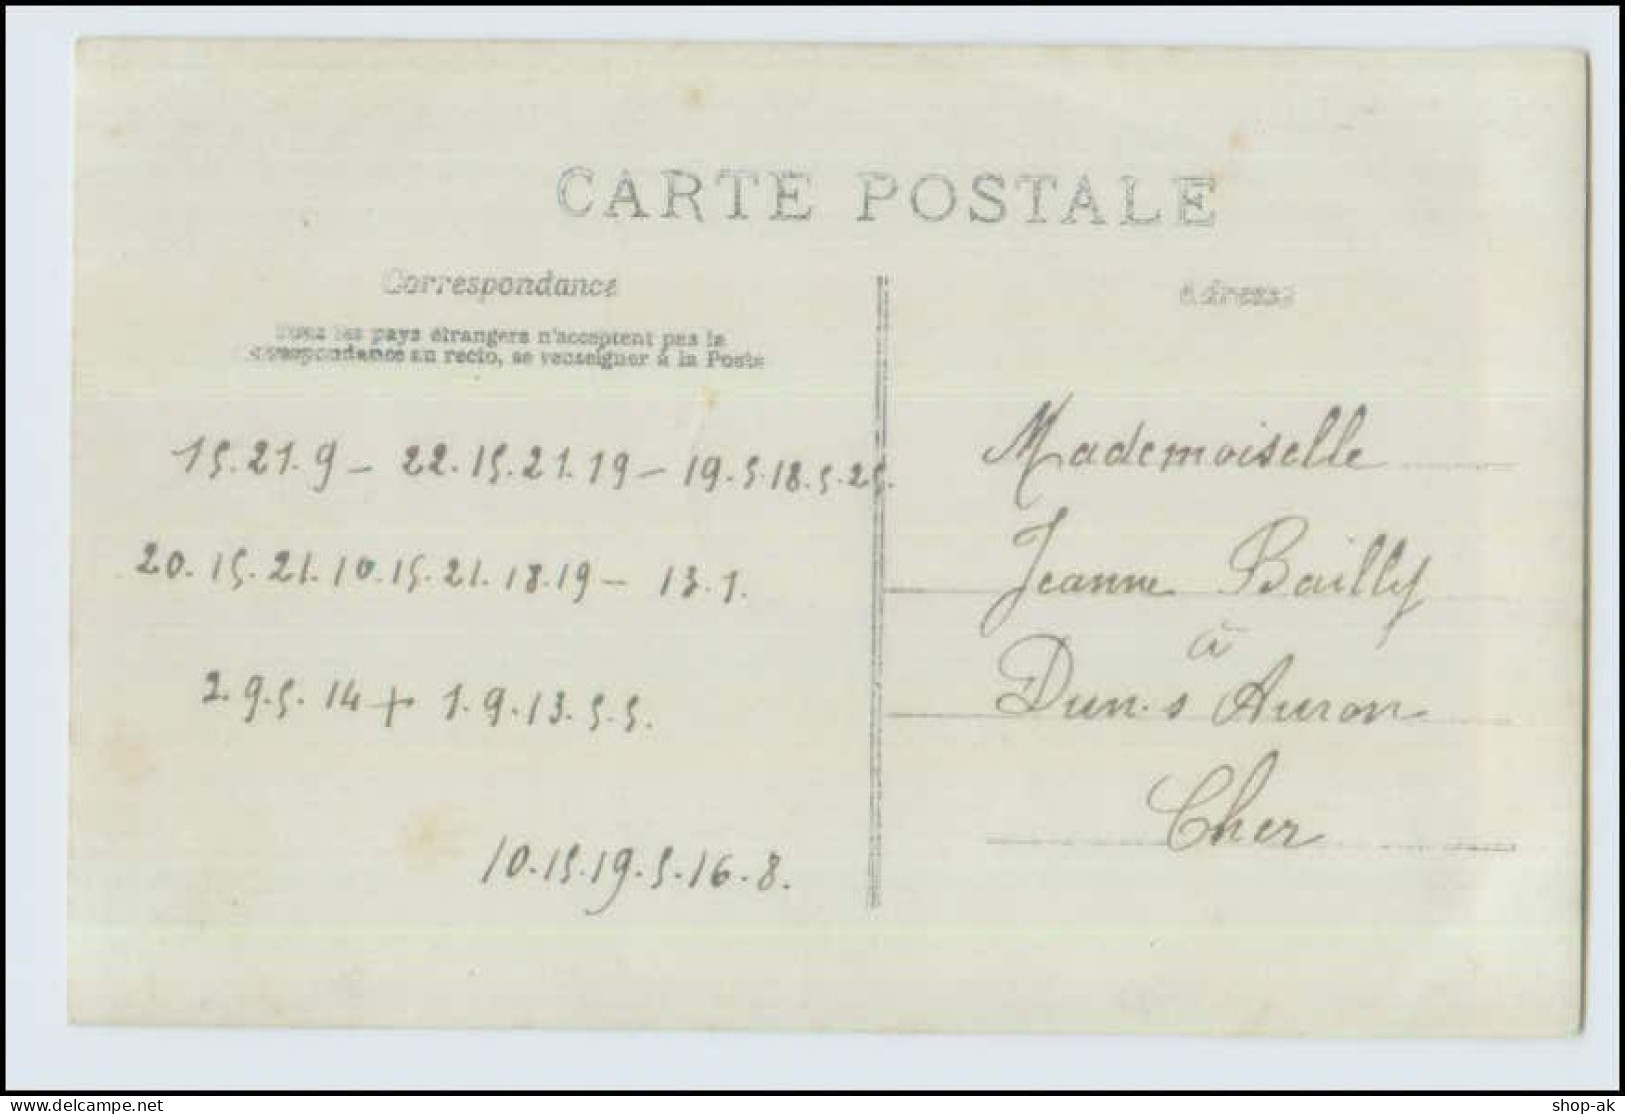 CARTE POSTALE
Correspondance
Tous les pays étrangers n'acceptent pas la
correspondance au recto, se renseigner à la Poste
15.21.9 - 22.15.21.19 - 19.5.18.5.25.
20.15.21.10.15.21.18.19 - 13.1.
2.9.5.14 + 1.9.13.5.5.
10.15.19.5.16.8.
Adresse
Mademoiselle
Jeanne Bailly
à
Dun-s Auron
Cher
www.delcampe.net
shop-ak